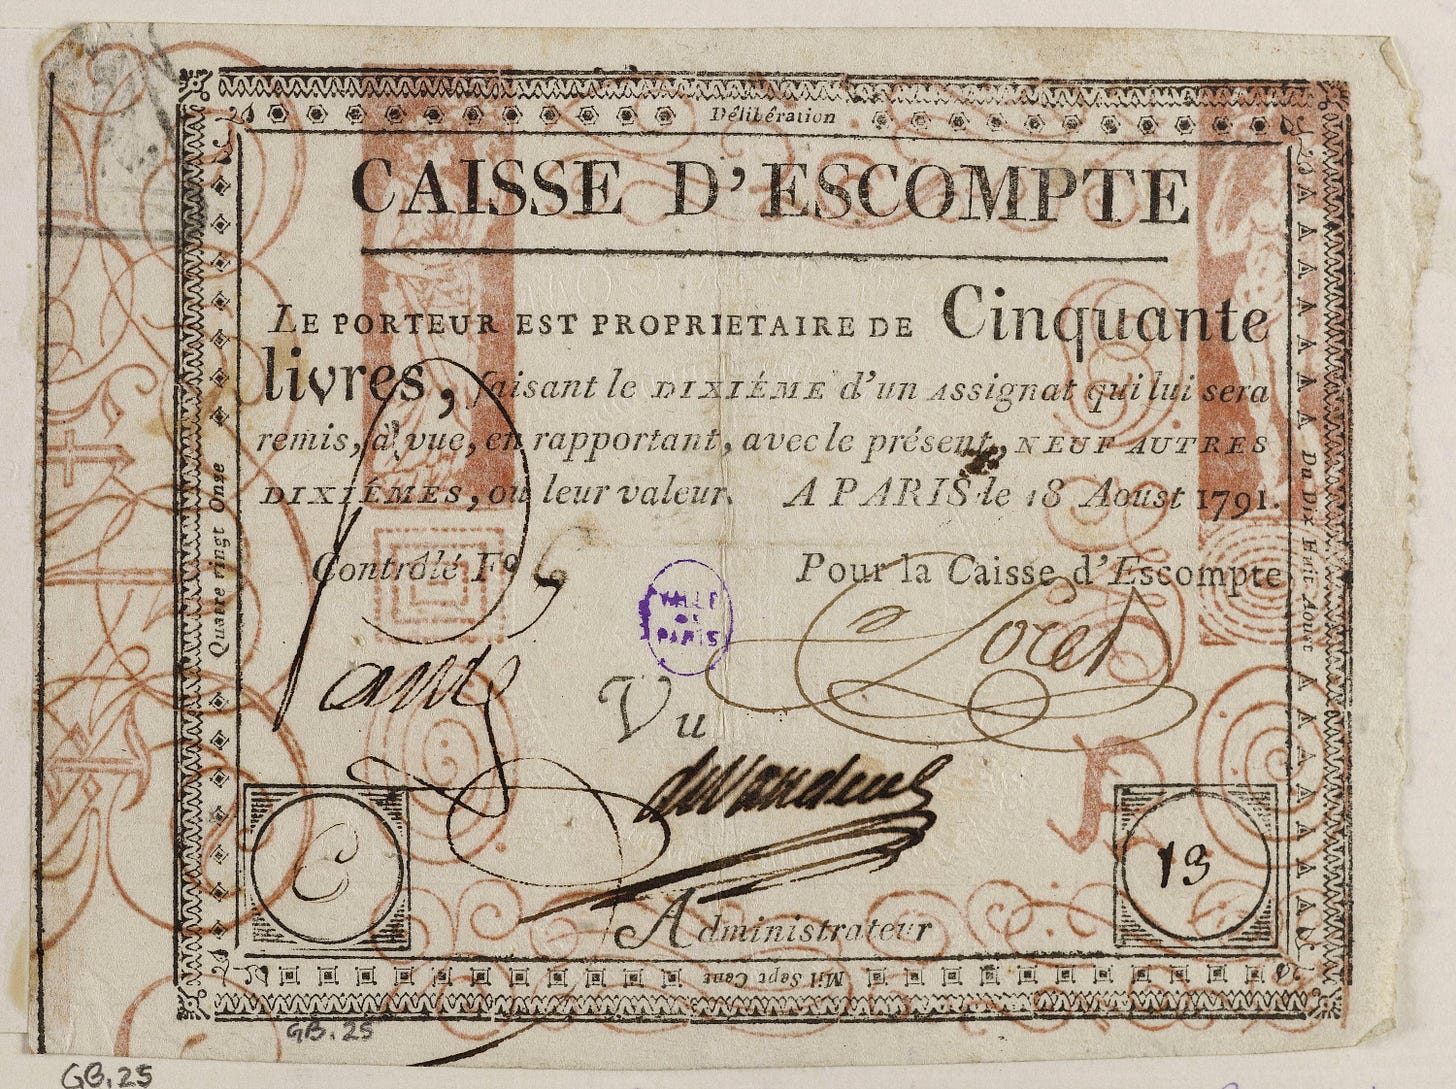 Délibération
CAISSE D'ESCOMPTE
LE PORTEUR EST PROPRIETAIRE DE Cinquante
livres, faisant le DIXIÉME d'un Assignat qui lui sera
remis, à vue, en rapportant, avec le présent, NEUF AUTRES
DIXIÉMES, ou leur valeur. A PARIS le 18 Aoust 1791.
Contrôlé Fº 6
Pour la Caisse d'Escompte
VILLE
DE
PARIS
Loret
Vu
Administrateur
C
13
Du Dix Huit Aoust
Mil Sept Cent
Quatre ringt Onse
GB.25
GB.25